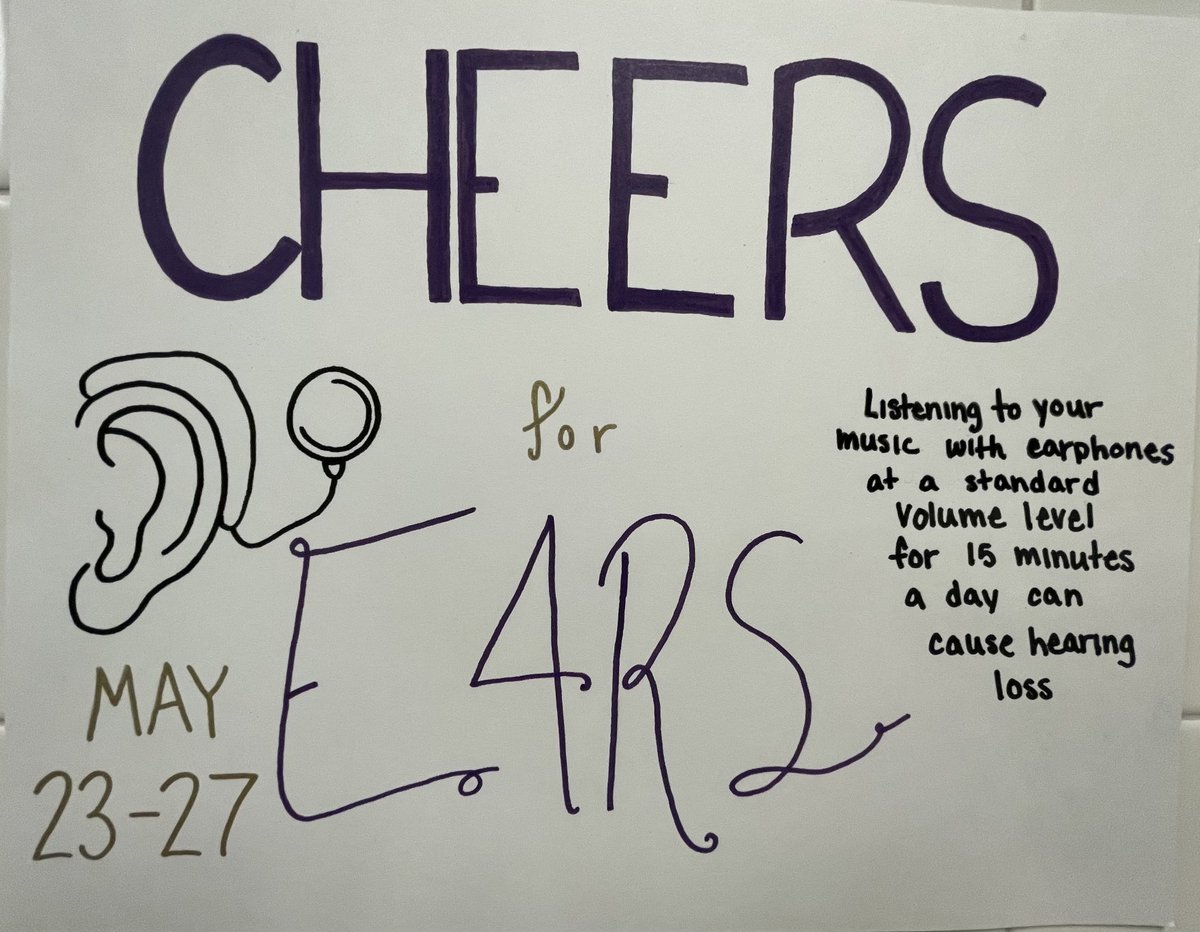 CHEERS
for
EARS
Listening to your
music with earphones
at a standard
volume level
for 15 minutes
a day can
cause hearing
loss
MAY
23-27